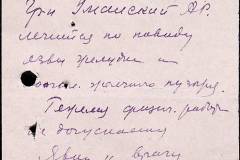 Гр-н Уманский А.Р.
лечится по поводу
язвы желудка и
желчного пузыря.
Тяжелая физич. работа
не допускается
Явка к врачу